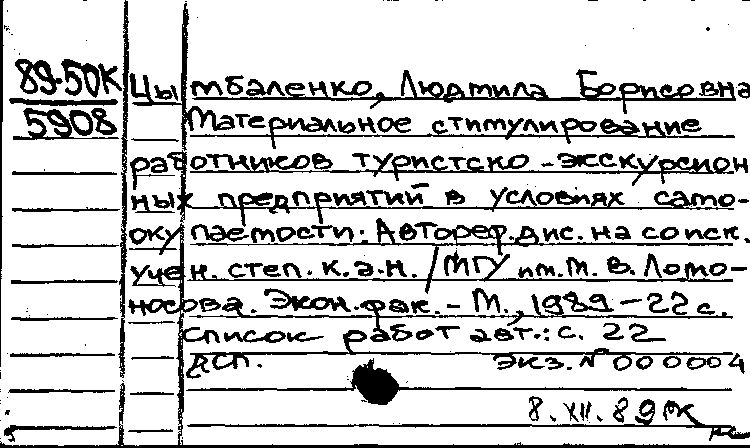 89-50К Цымбаленко, Людмила Борисовна
5908 Материальное стимулирование
работников туристско-экскурсион
ных предприятий в условиях само-
окупаемости: Автореф. дис. на соиск.
учен. степ. к.э.н. / МГУ им. М. В. Ломо-
носова. Экон. фак. - М., 1989 - 22 с.
Список работ авт.: с. 22
ДСП. экз. № 000004
8.XII.89